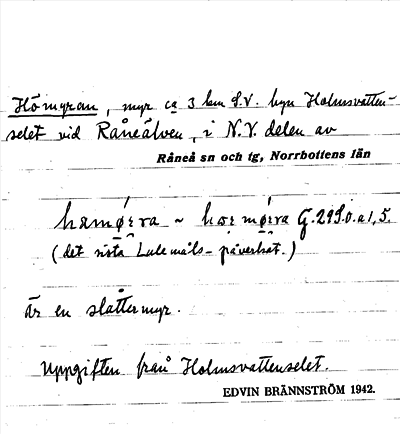 Hömyran, myr ca 3 km S.V. byn Holmsvatten-
selet vid Råneälven, i N.V. delen av
Råneå sn och tg, Norrbottens län
hamø̀rra ~ G. 29
(det sista Lulemåls-påverkat.)
Är en slåttermyr.
Uppgiften från Holmsvattenselet.
EDVIN BRÄNNSTRÖM 1942.